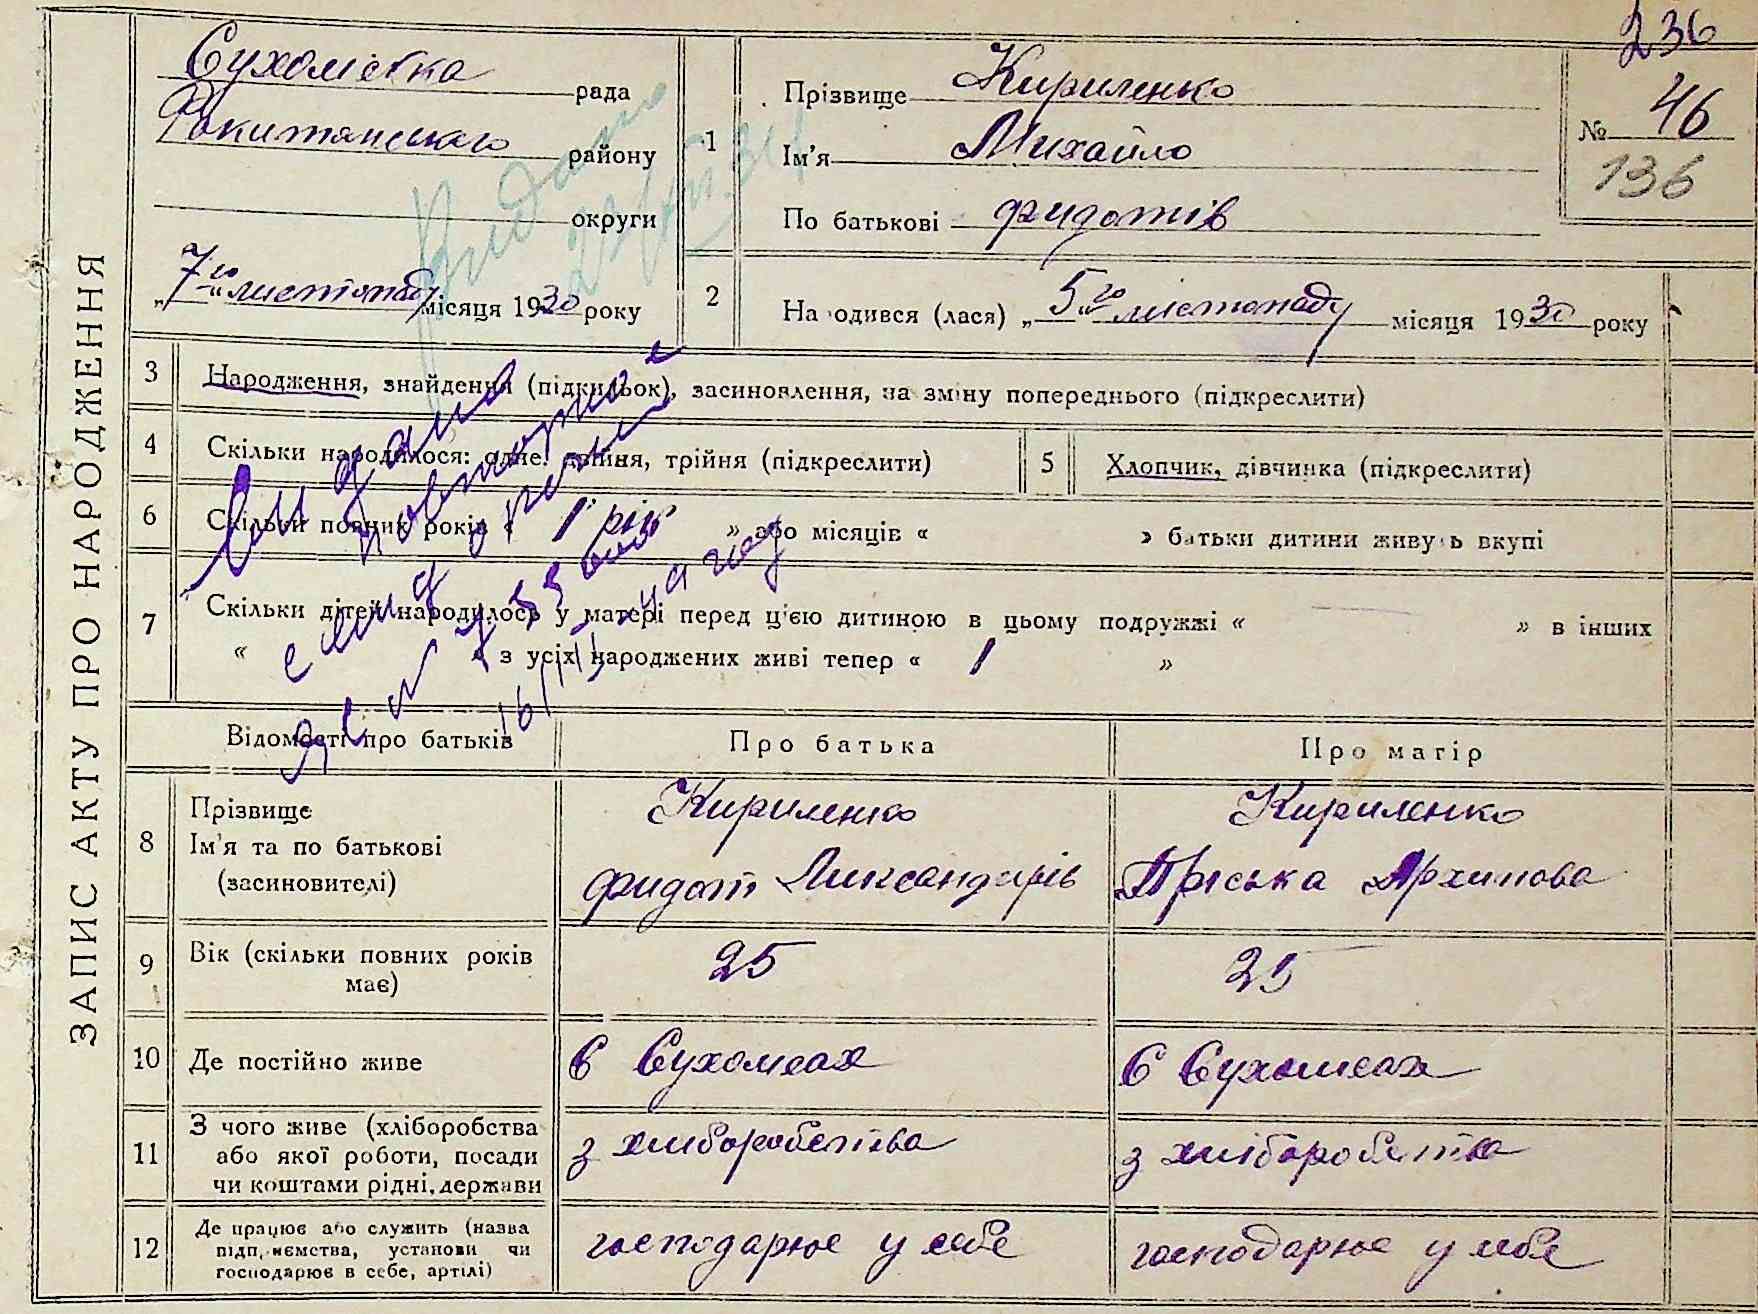 236
Сухоліська рада
Рокитянського району
округи
„7го" листопаду місяця 1930 року
1
Прізвище Кириленко
Ім'я Михайло
По батькові Фидотів
№ 46
136
Видано
2
Народився (лася) „5го" листопаду місяця 1930 року
ЗАПИС АКТУ ПРО НАРОДЖЕННЯ
3 Народження, знайдення (підкидьок), засиновлення, на зміну попереднього (підкреслити)
4 Скільки народилося: одне, двійня, трійня (підкреслити)
5 Хлопчик, дівчинка (підкреслити)
6 Скільки повних років « 1 рік » або місяців « » батьки дитини живуть вкупі
7 Скільки дітей народилось у матері перед цією дитиною в цьому подружжі « — » в інших
« « з усіх народжених живі тепер « 1 »
Видано
повторне
Відомості про батьків
Про батька
Про матір
8 Прізвище
Ім'я та по батькові
(засиновителі)
Кириленко
Фидот Ликсандрів
Кириленко
Пріська Архипова
9 Вік (скільки повних років
має)
25
25
10 Де постійно живе
в Сухолісах
в Сухолісах
11 З чого живе (хліборобства
або якої роботи, посади
чи коштами рідні, держави
з хліборобства
з хліборобства
12 Де працює або служить (назва
підприємства, установи чи
господарює в себе, артілі)
господарює у себе
господарює у себе